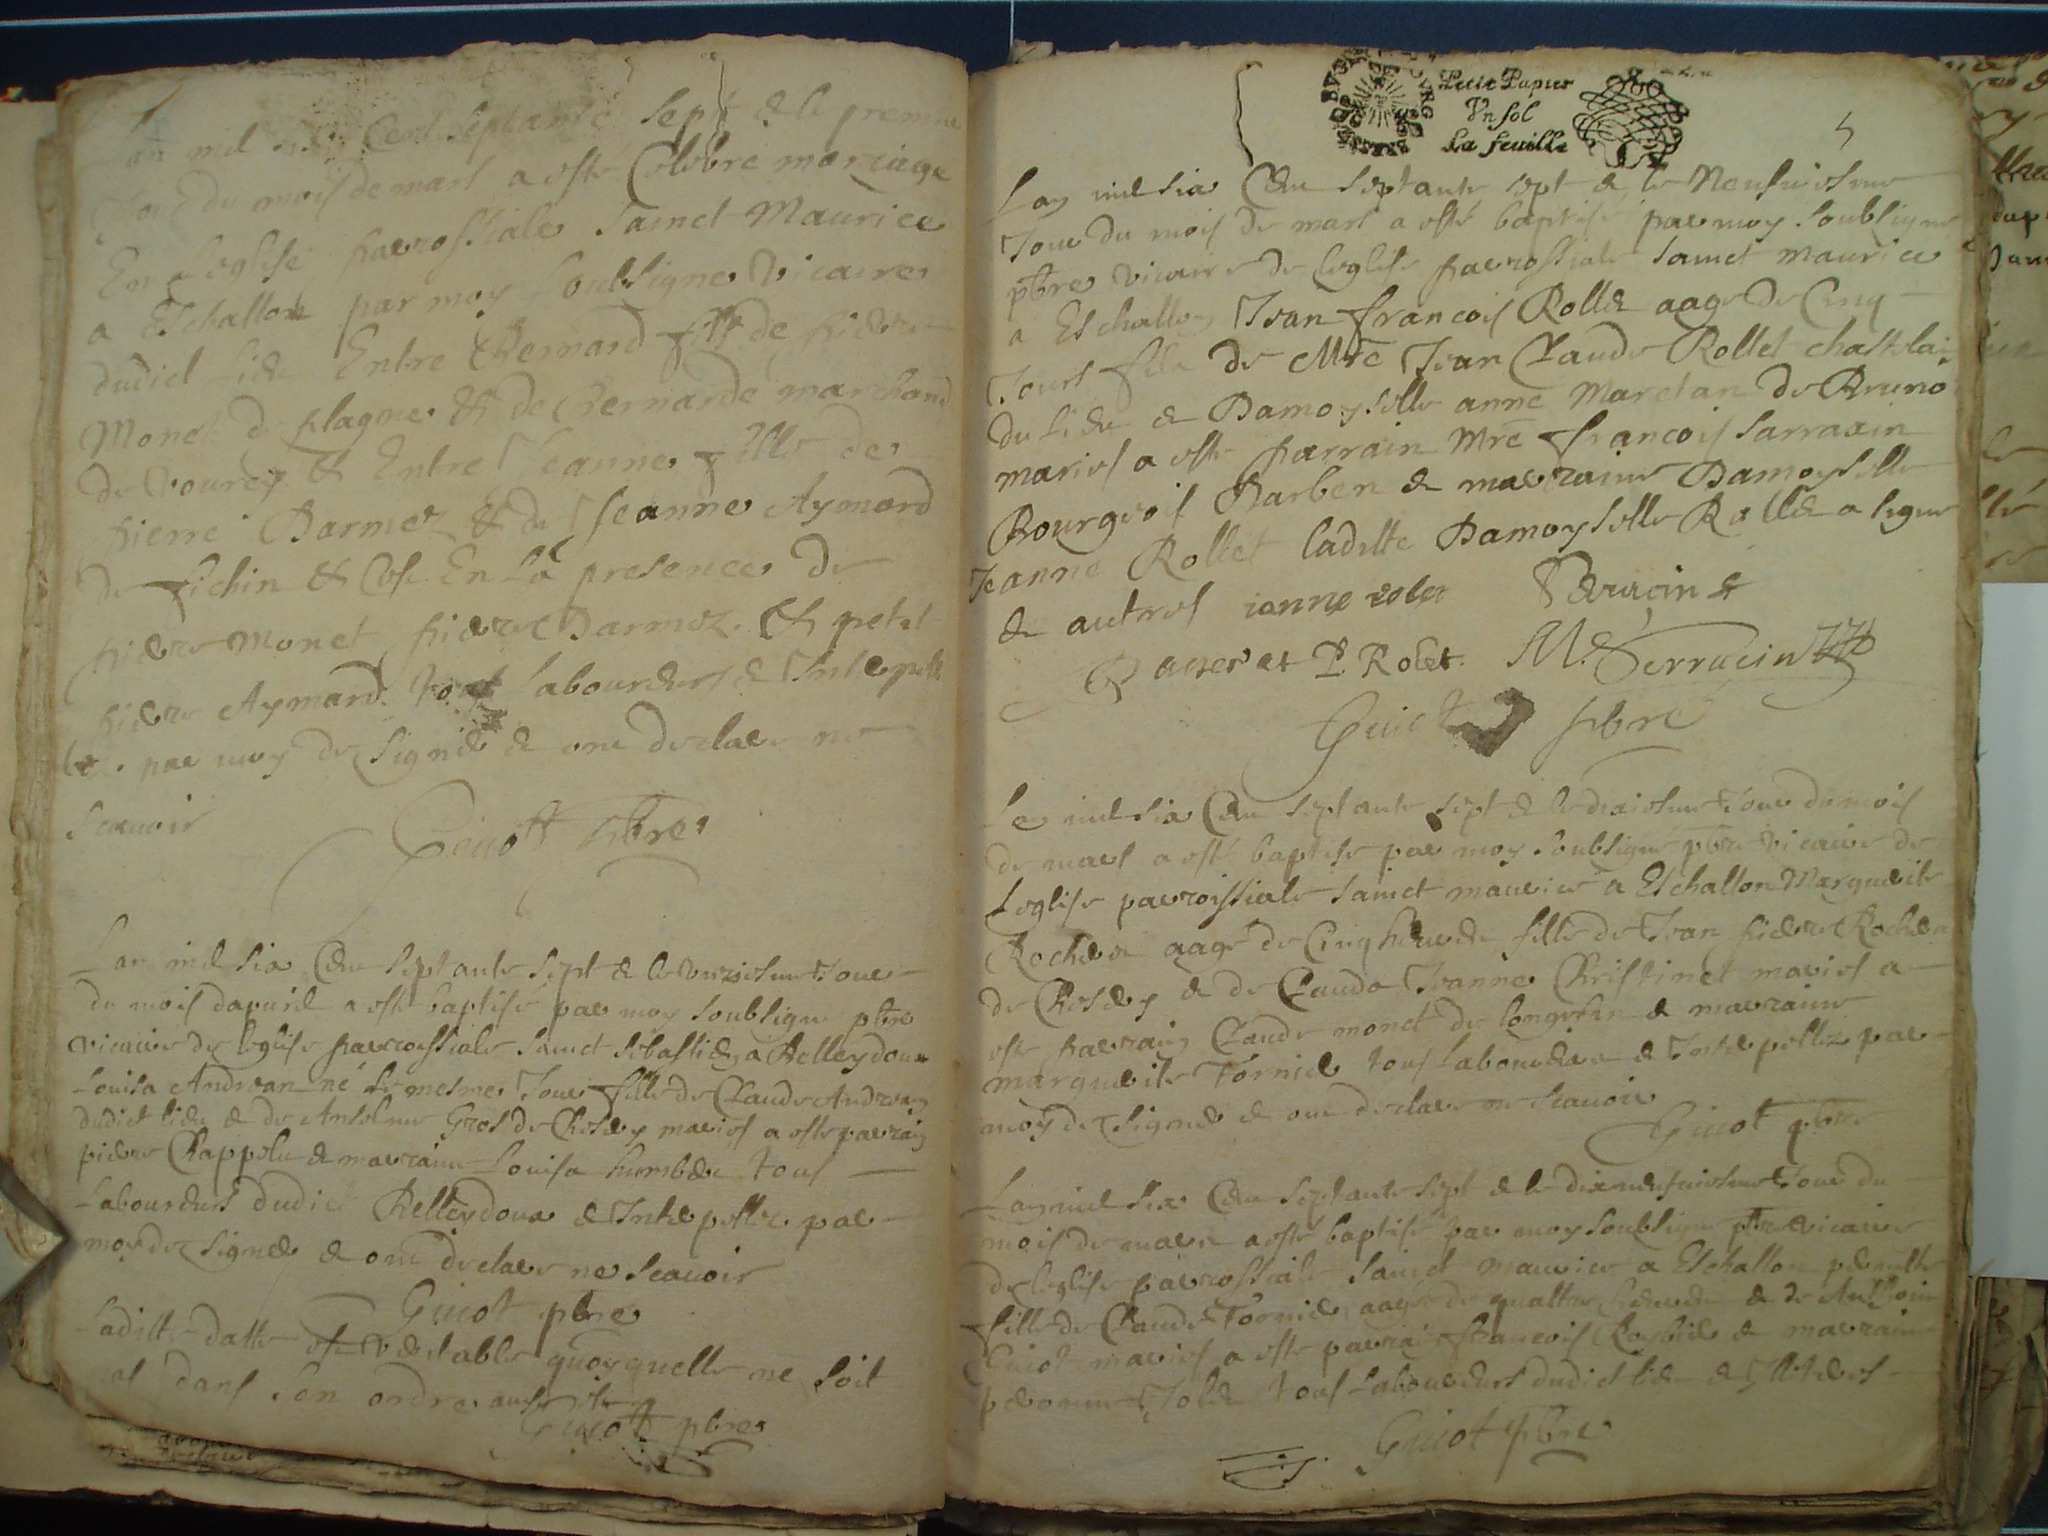 Lan mil six Cent septante sept & le premier
Jour du mois de mars a esté Celebre mariage
En leglise parrossiale Sainct Maurice
a Eschallon par moy soubsigne Vicaire
dudict lieu Entre Bernard fils de pierre
Monet de plagne & de Bernarde marchand
de vourey & Entre Jeanne fille de
pierre Darmez & de Jeanne Aymard
de En La presence de
pierre Monet pierre Darmez & petit
pierre Aymard tous Laboureurs & Interpelle
par moy de signer & ont declare ne
Scauoir
Guiott pbre
Lan mil six Cent septante sept & le unziesme Jour
du mois dapuril a esté baptisé par moy soubsigne pbre
vicaire de leglise parrossiale Sainct sebastien a Belleydoux
Louisa Andrean né le mesme Jour fille de Claude Andrean
dudict lieu & de Anselme Gros de Chosey maries a este parrain
pierre Chappelu & marraine Louisa humbert tous
Laboureurs dudict Belleydoux & Interpelles par
moy de signer & ont declare ne scauoir
Guiot pbre
Laditte datte est veritable quoyquelle ne soit
pas dans son ordre
Guiott pbre
Petit Papier
Vn sol
La feuille
5
Lan mil six Cent septante sept & le Neufuiesme
Jour du mois de mars a esté baptisé par moy soubsigne
pbre vicaire de leglise parrossiale Sainct Maurice
a Eschallon Jean francois Rollet aage de Cinq
Jours fils de Mre Jean Claude Rollet chastelain
du lieu & Damoyselle anne Maretan de
maries a este parrain Mre francois Sarraxin
Bourgeois Darben & marraine Damoyselle
Jeanne Rollet laditte Damoyselle Rollet a signe
& autres ianne rolet
et P. Rolet. M.
Guiot pbre
Lan mil six Cent septante sept & le dixiesme Jour du mois
de mars a esté baptise par moy soubsigné pbre vicaire de
Leglise parroissiale Sainct maurice a Eschallon Marguerite
Rochex aagé de Cinq heures fille de Jean pierre Rochex
de Chosey & de Claude Jeanne Christinet maries a
este parrain Claude monet de & marraine
marguerite Tornier tous Laboureurs & Interpellez par
moy de signer & ont declare ne scauoir
Guiot pbre
Lan mil six Cent septante sept & le dixneufuiesme Jour du
mois de mars a esté baptisé par moy soubsigne pbre vicaire
de leglise parrossiale Sainct maurice a Eschallon pernette
fille de Claude Tornier aagée de quattre heures & de Anthoine
Guiot maries a este parrain francois & marraine
tous Laboureurs dudict lieu &
Guiot pbre